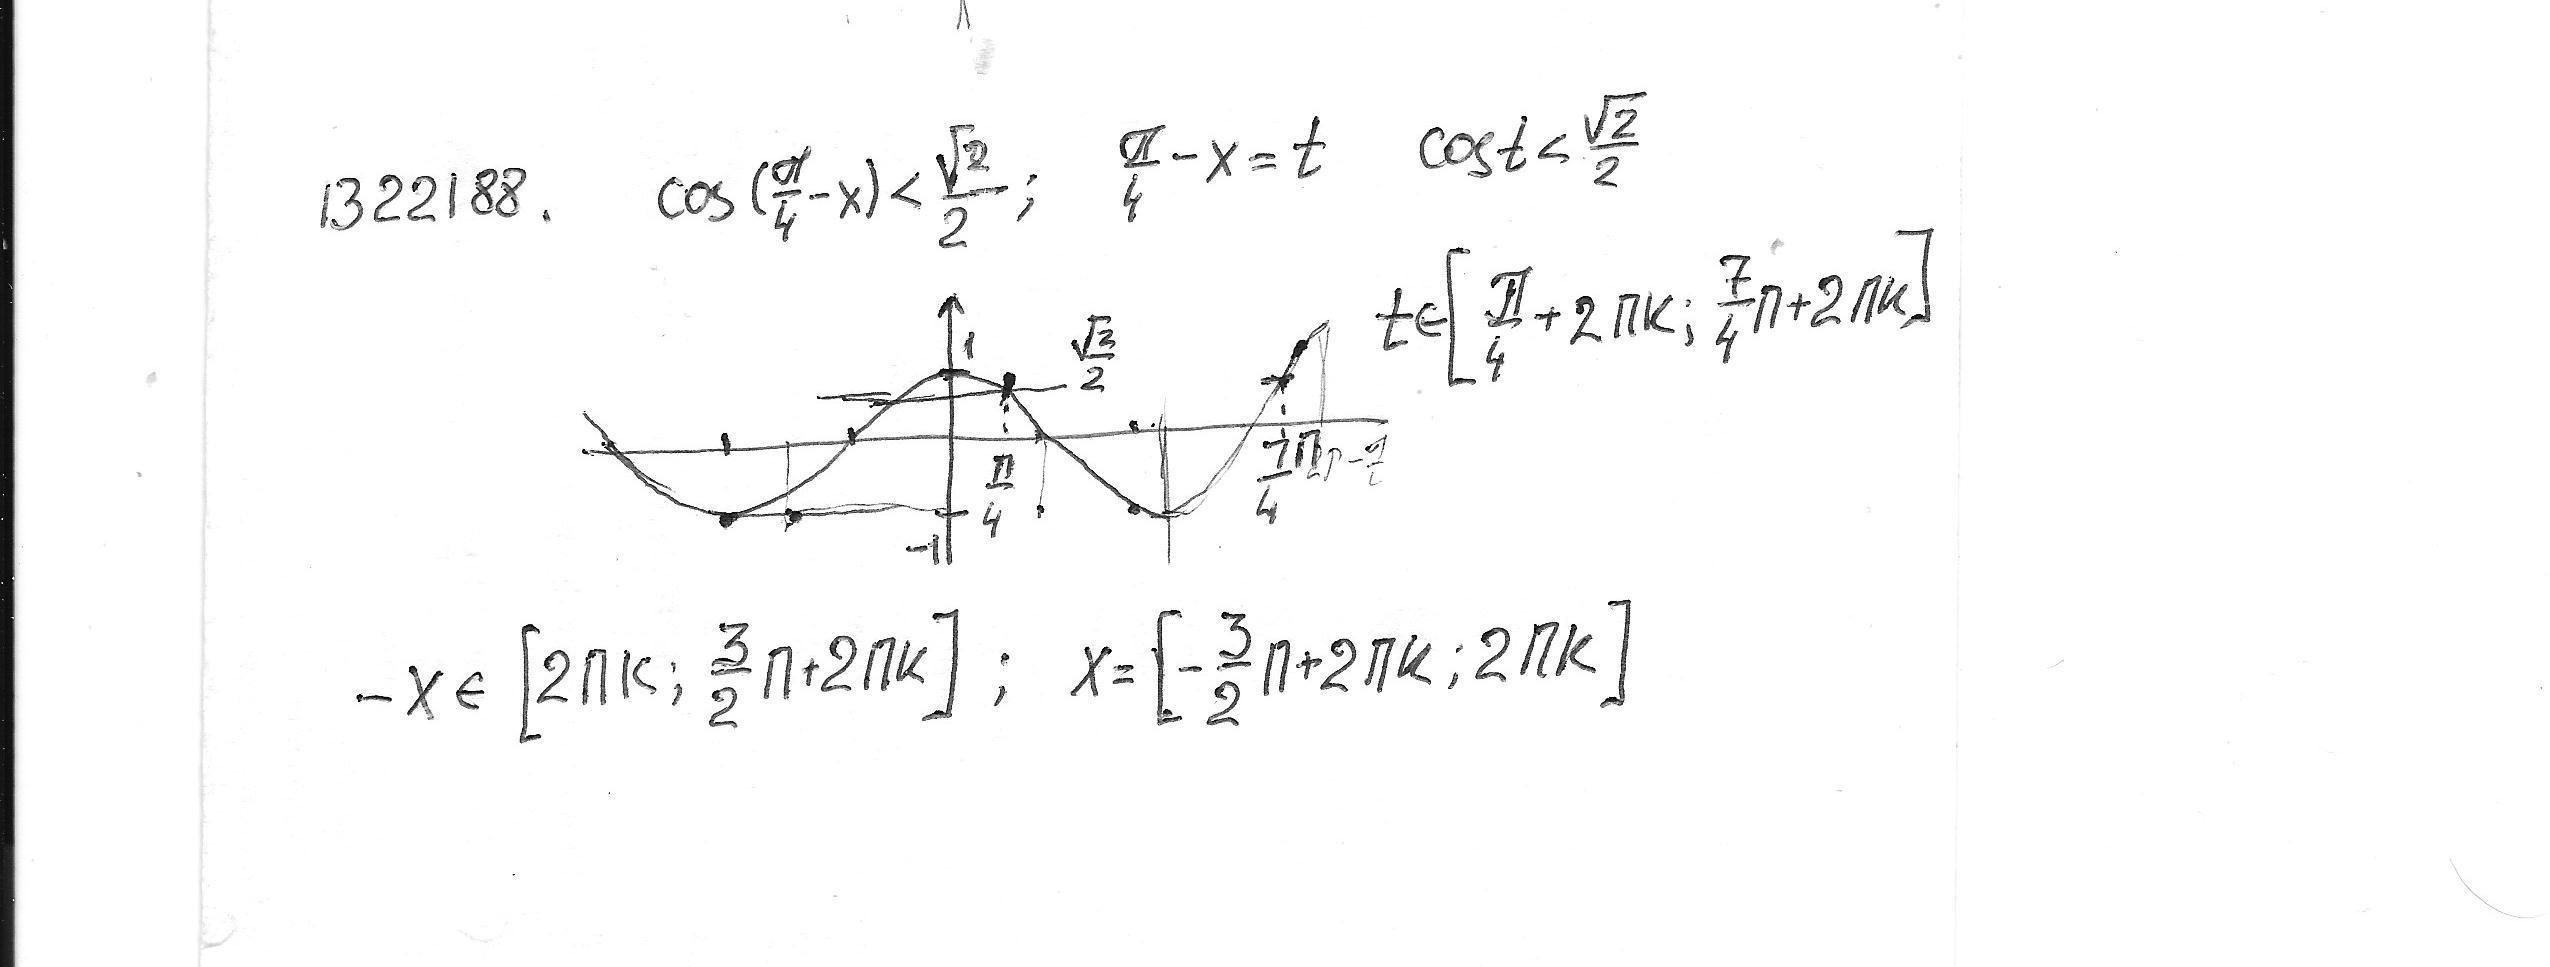 1322188. cos(π/4-x)<√2/2; π/4-x=t cost<√2/2
t∈[π/4+2πk; 7/4π+2πk]
1
√2/2
π/4
7/4π
-1
-x∈[2πk; 3/2π+2πk]; x=[-3/2π+2πk; 2πk]